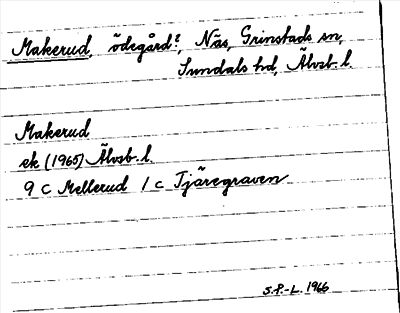 Makerud, ödegård?, Näs, Grinstads sn,
Sundals hd, Älvsb. l.
Makerud
ek (1965) Älvsb. l.
9 c Mellerud 1 c Tjäregraven
S.P.-L. 1966